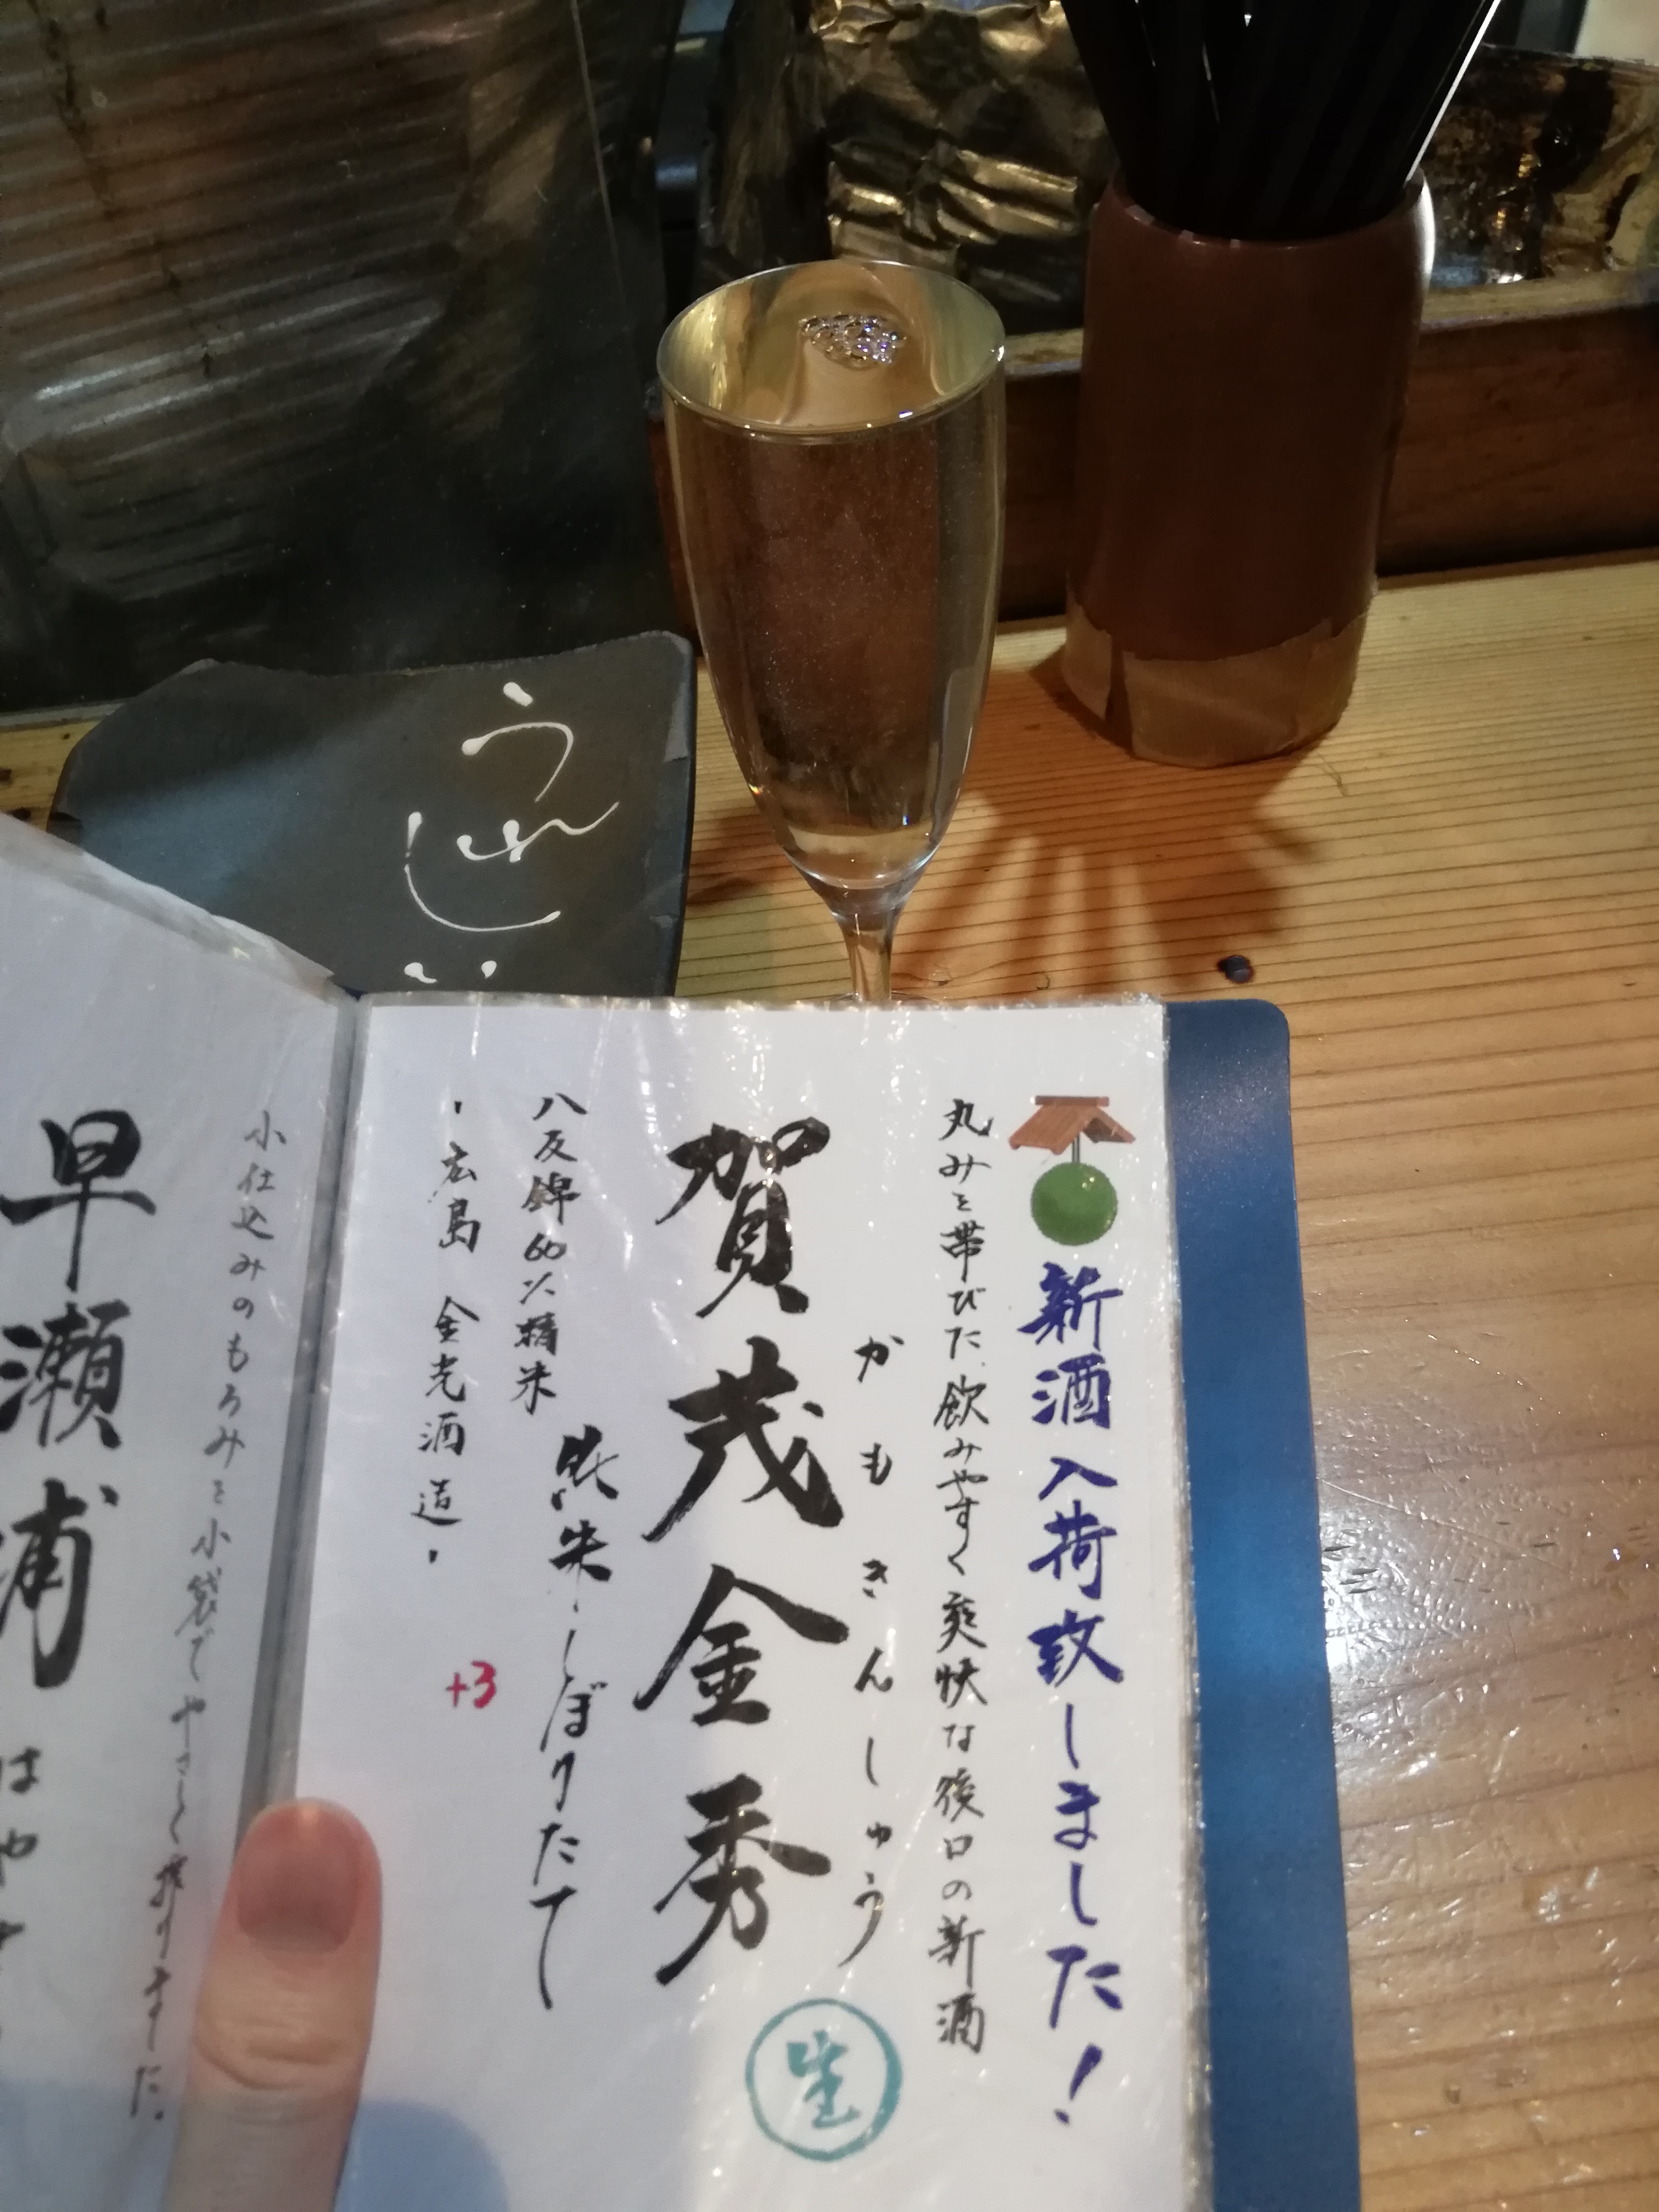 新酒入荷致しました!
丸みを帯びた、飲みやすく爽快な後口の新酒
かもきんしゅう
賀茂金秀
生
純米しぼりたて
八反錦60%精米
・広島 金光酒造・
+3
小仕込みのもろみを小袋でやさしく搾りました。
早瀬浦